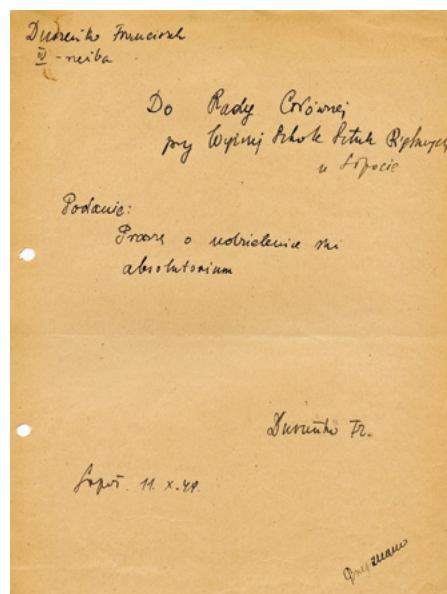 Duszeńko Franciszek
IV - rzeźba
Do Rady Głównej
przy Wyższej Szkole Sztuk Plastycznych
w Sopocie
Podanie:
Proszę o udzielenie mi
absolutorium
Duszeńko Fr.
Sopot. 11. X. 49.
Przyznano